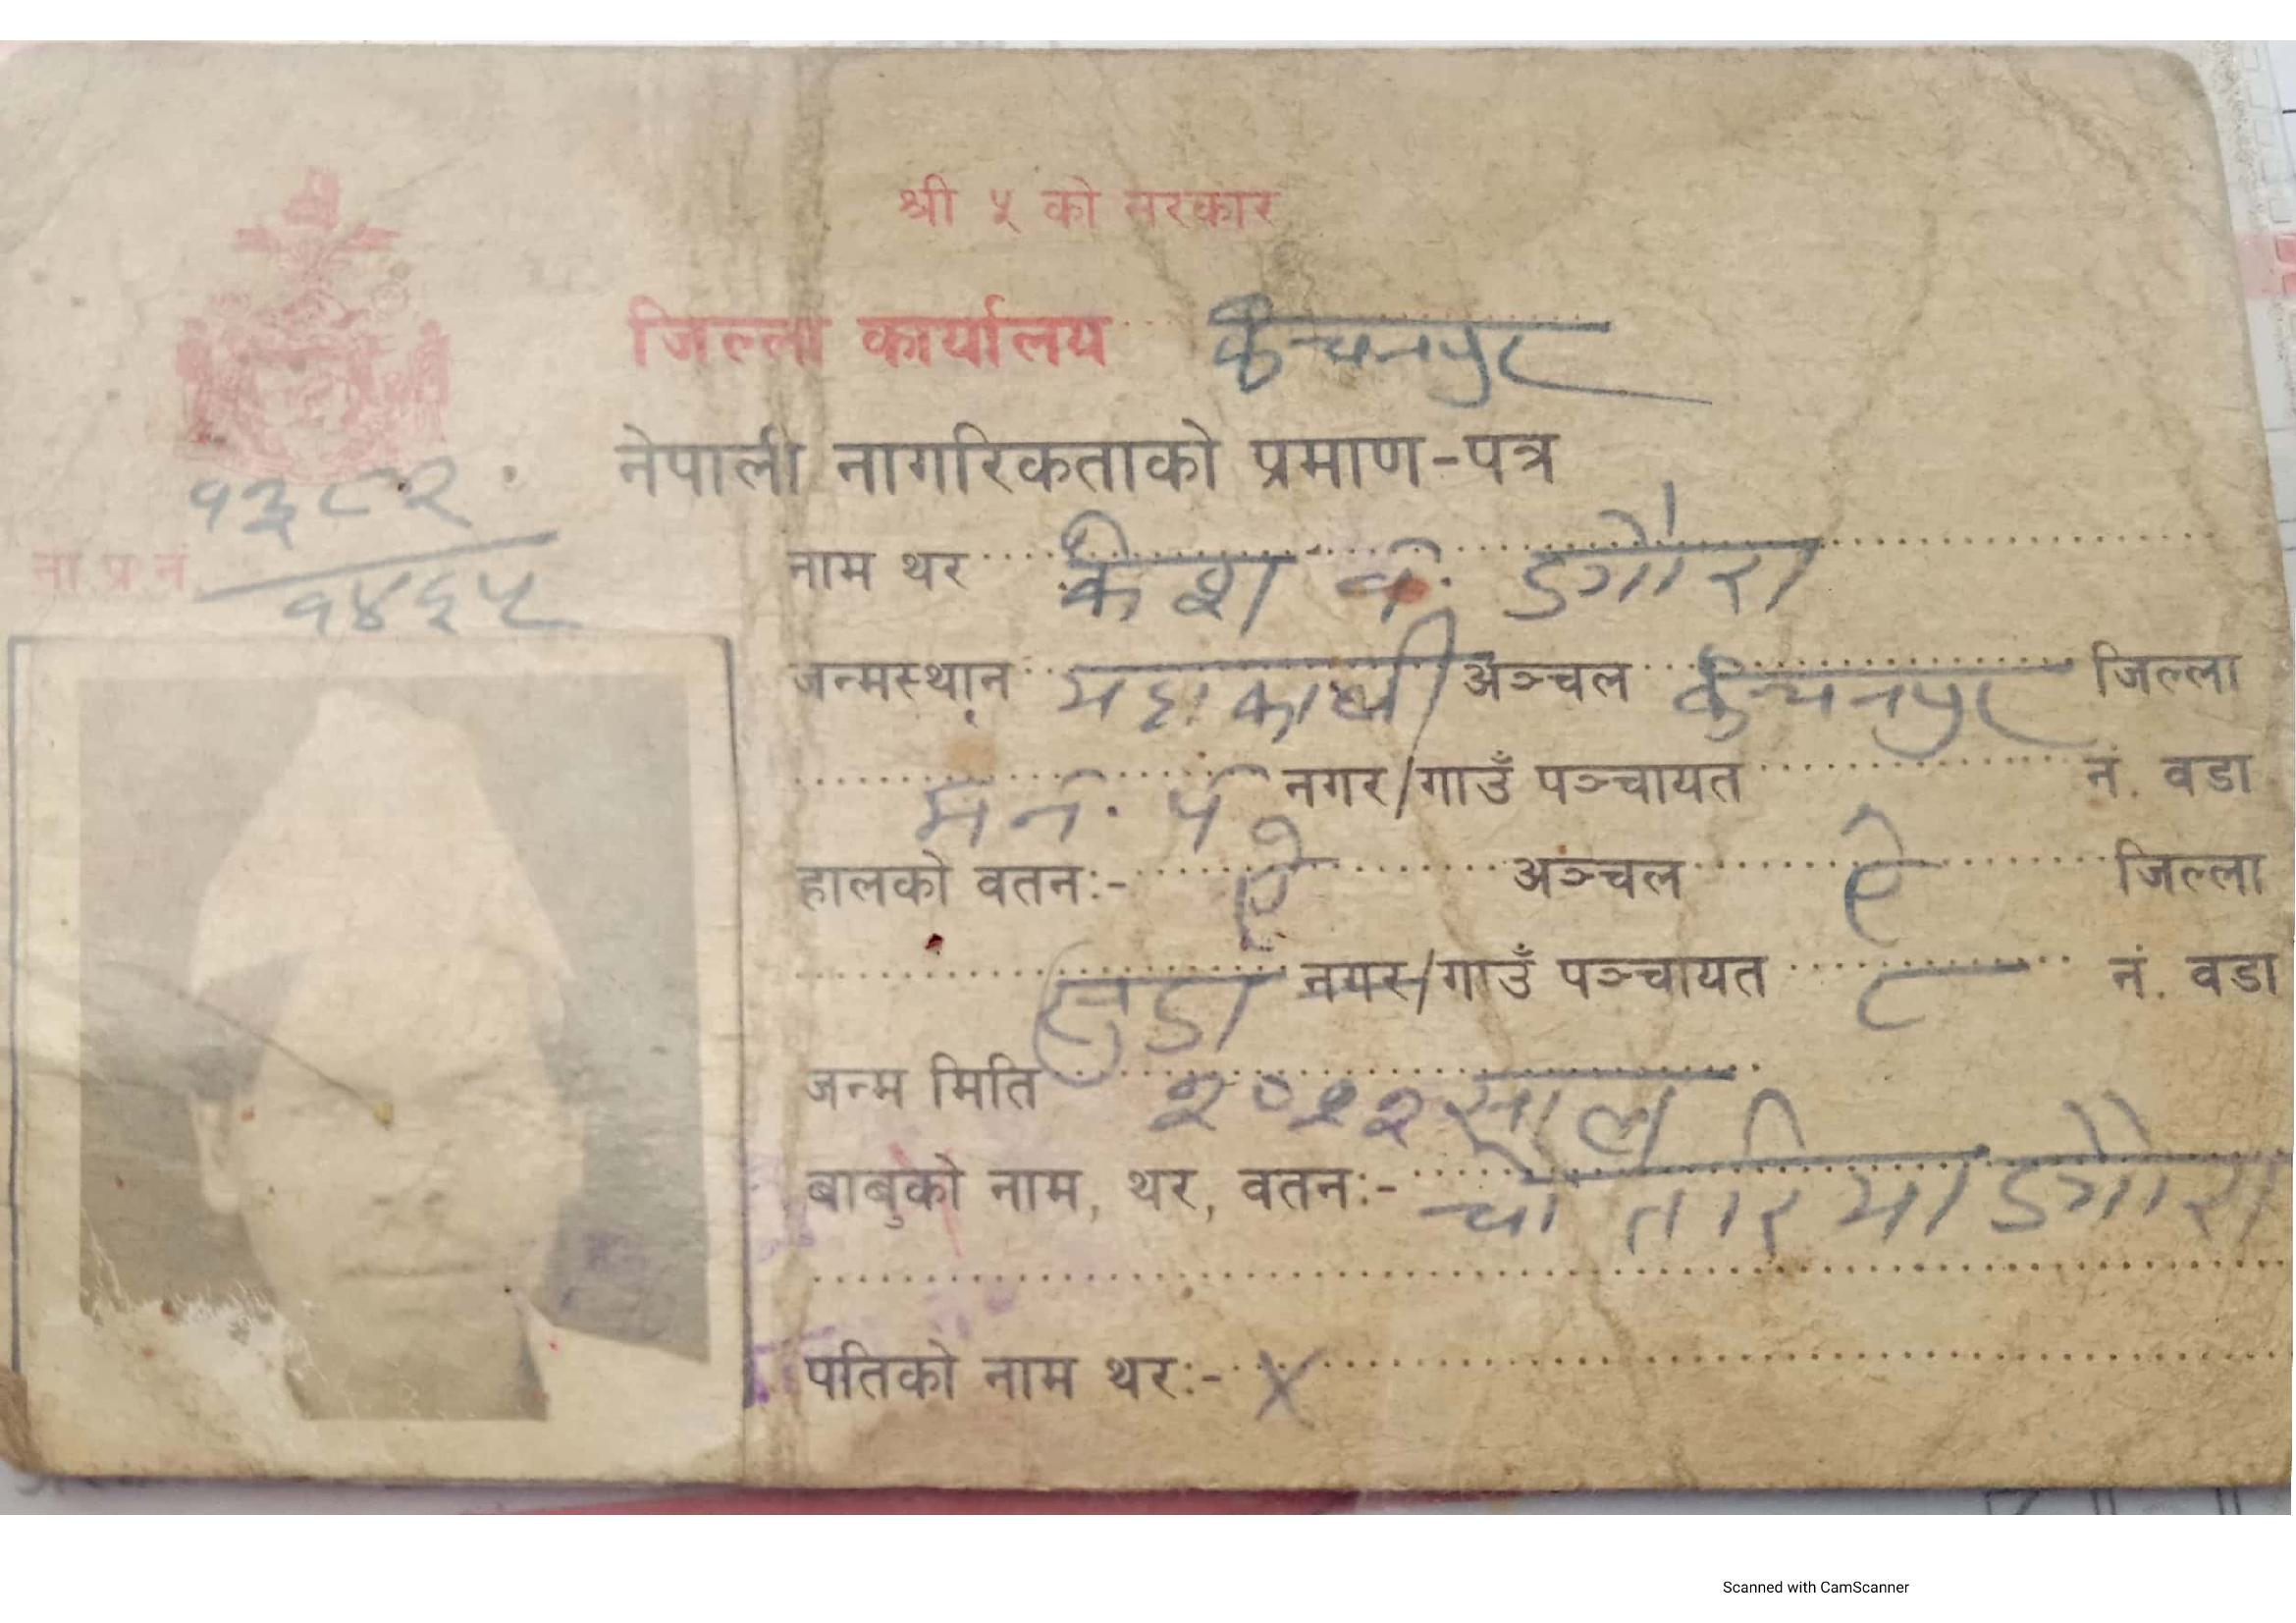 श्री ५ को सरकार
जिल्ला कार्यालय कंचनपुर
नेपाली नागरिकताको प्रमाण-पत्र
१३८२
ना.प्र.नं. १४६५
नाम थर डगौरा
जन्मस्थान महाकाली अञ्चल कंचनपुर जिल्ला
म.न. पं नगर/गाउँ पञ्चायत नं. वडा
हालको वतन:- ऐ अञ्चल ऐ जिल्ला
नगर/गाउँ पञ्चायत ८ नं. वडा
जन्म मिति साल
बाबुको नाम, थर, वतन:- डगौरा
पतिको नाम थर:- X
Scanned with CamScanner